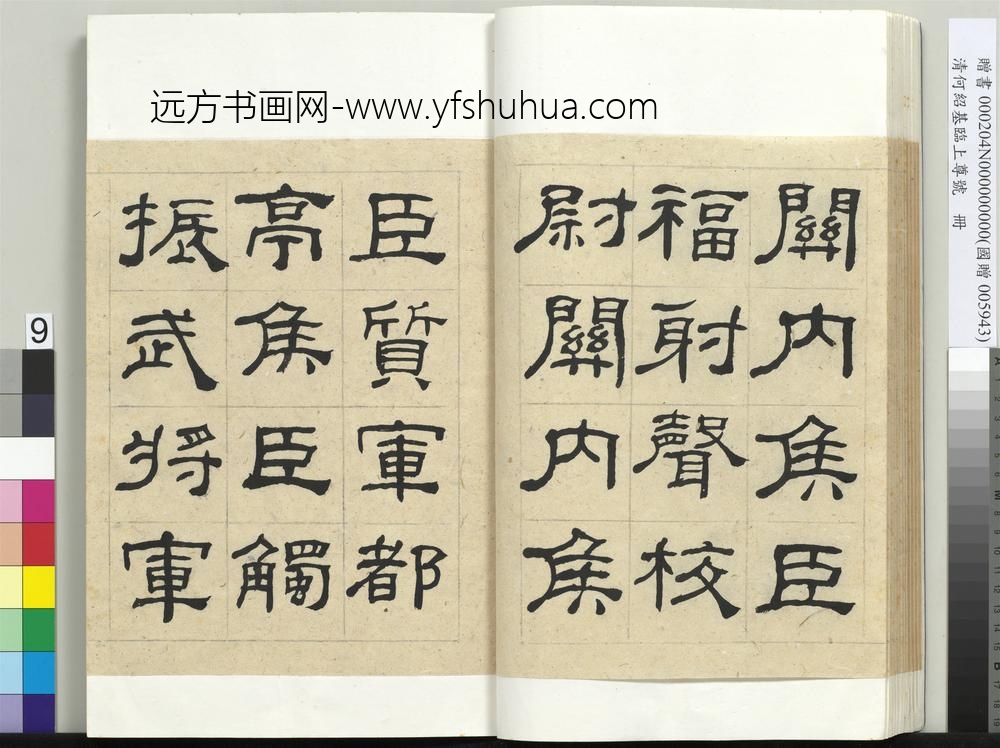 远方书画网-www.yfshuhua.com
關內侯臣
福射聲校
尉關內侯
臣質軍都
亭侯臣觸
振武將軍
贈書 000204N000000000(國贈 005943)
清何紹基臨上尊號 冊
9